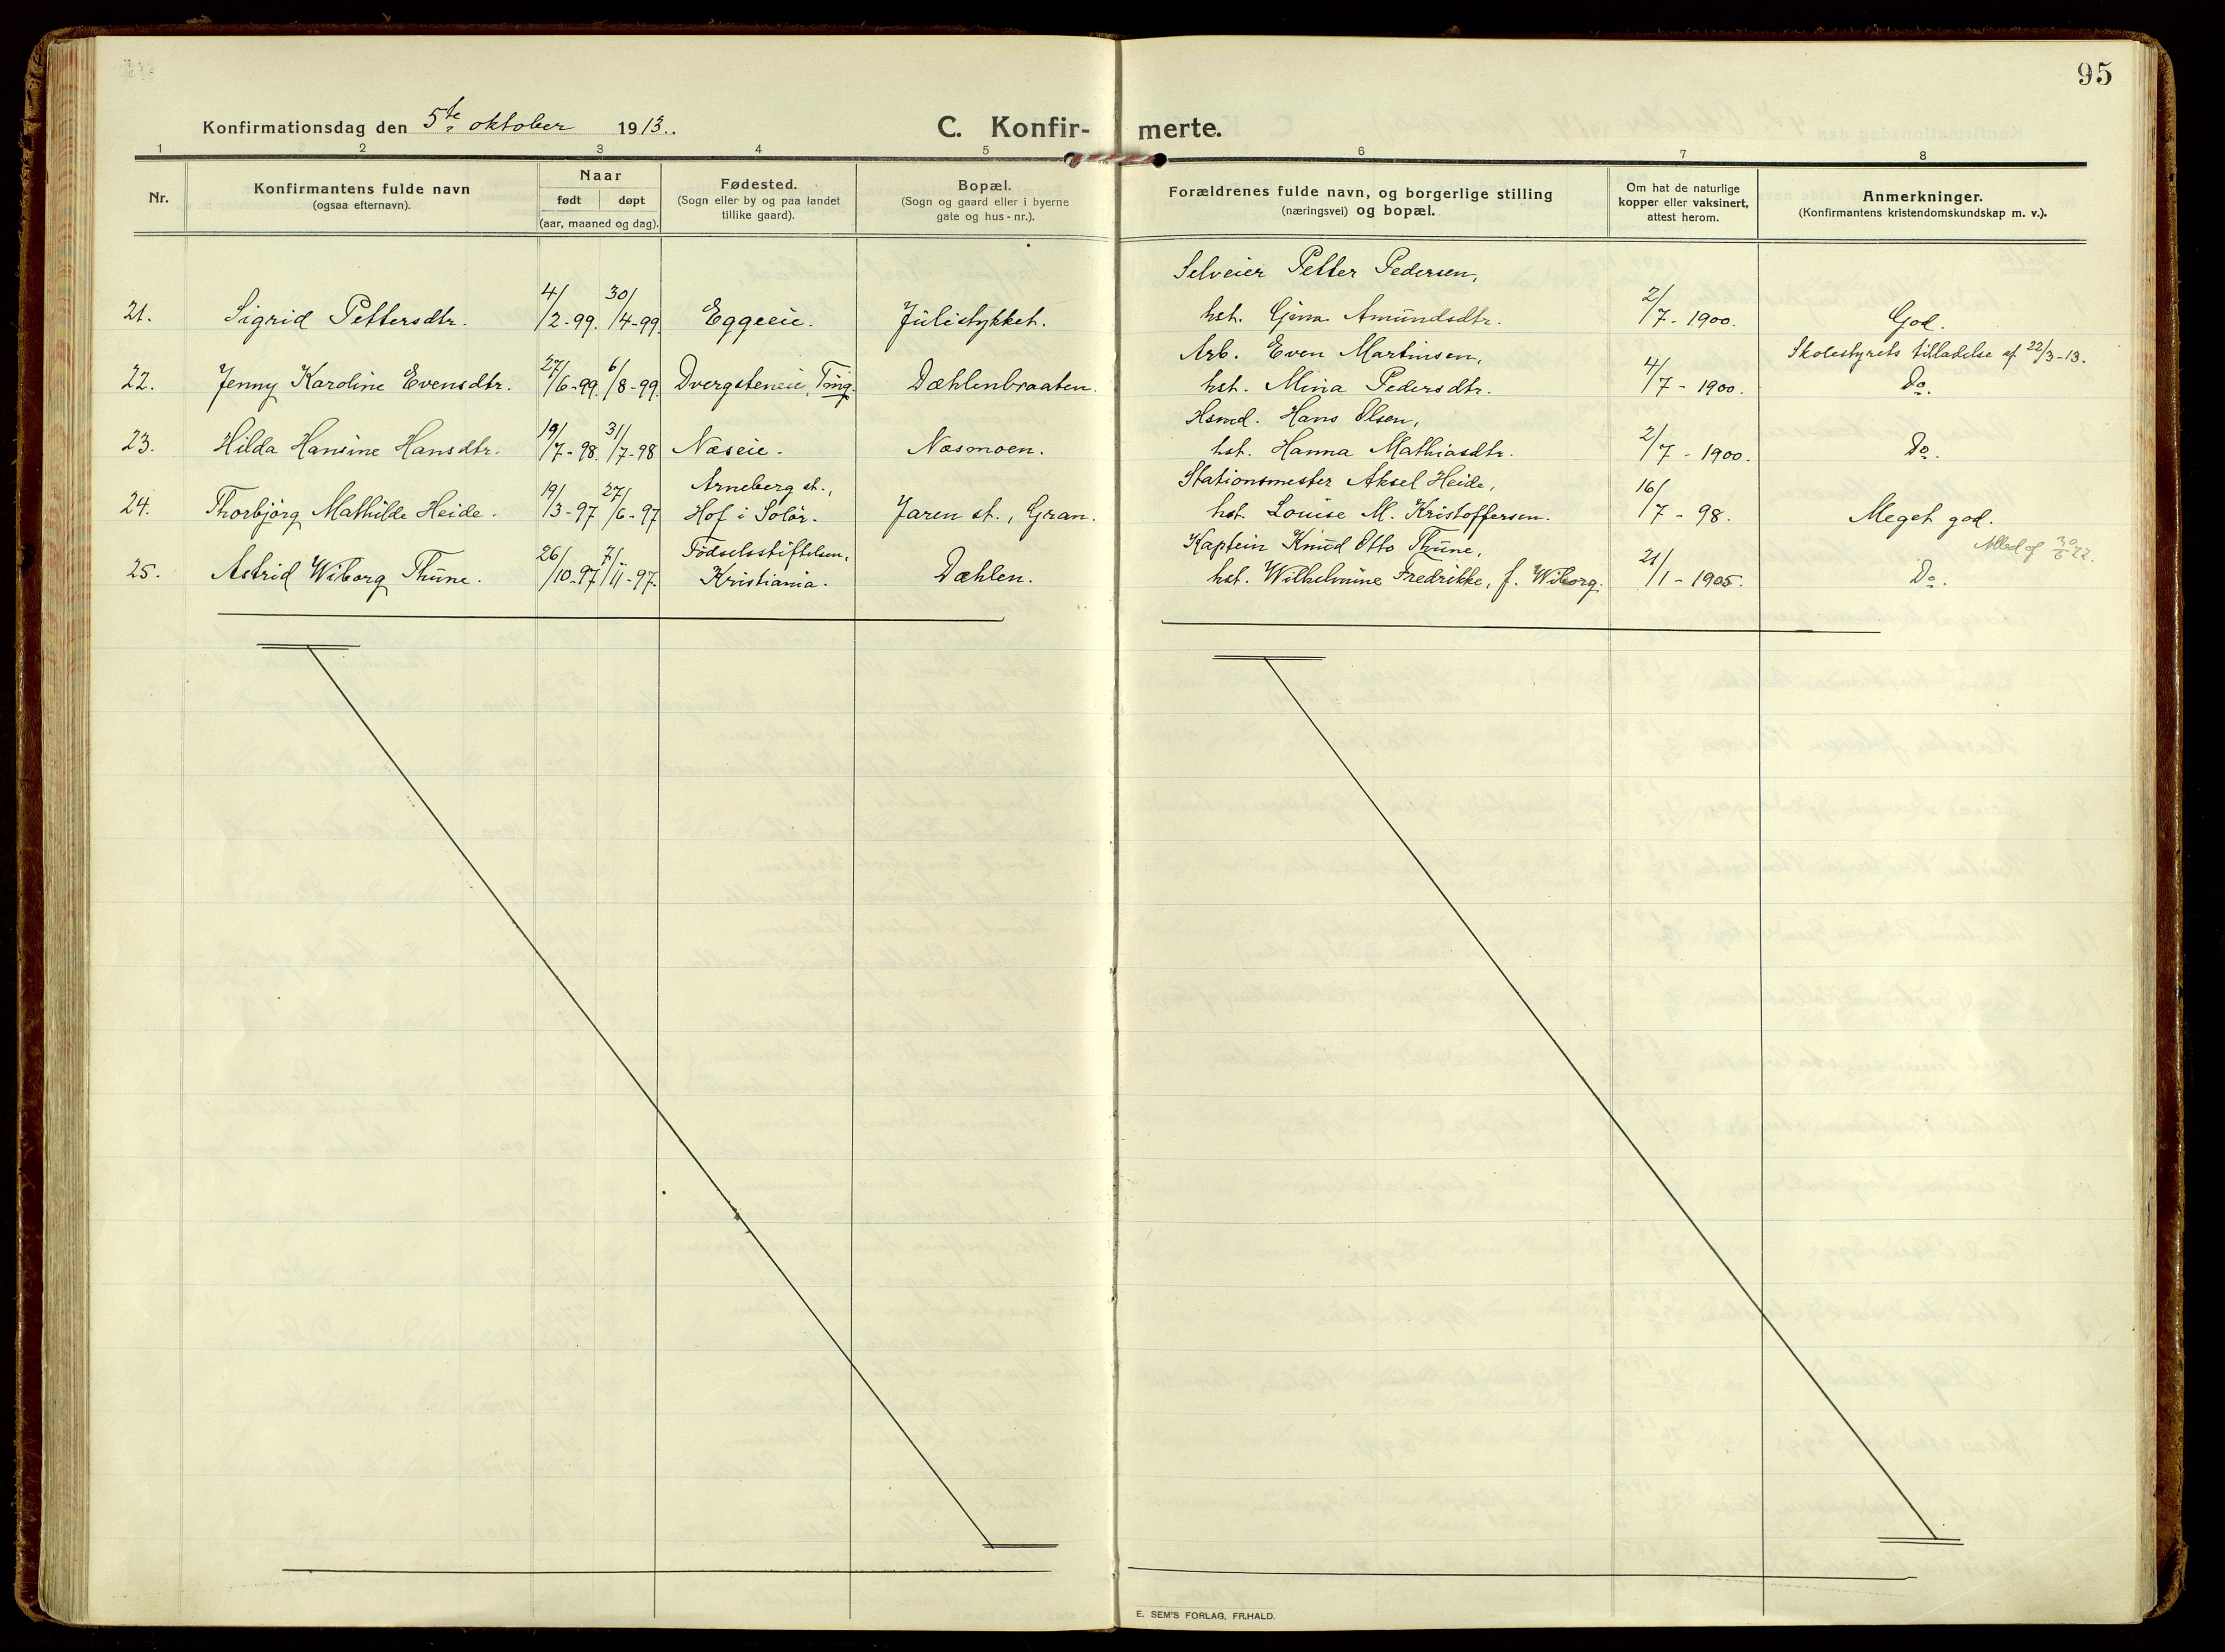 95
Konfirmationsdag den 5te oktober 1913.
C. Konfir- merte.
1 2 3 4 5 6 7 8
Nr.
Konfirmantens fulde navn
(ogsaa efternavn).
Naar
født døpt
(aar, maaned og dag).
Fødested.
(Sogn eller by og paa landet
tillike gaard).
Bopæl.
(Sogn og gaard eller i byerne
gate og hus-nr.).
Forældrenes fulde navn, og borgerlige stilling
(næringsvei) og bopæl.
Om hat de naturlige
kopper eller vaksinert,
attest herom.
Anmerkninger.
(Konfirmantens kristendomskundskap m. v.).
Selveier Petter Pedersen,
21. Sigrid Pettersdtr. 4/2-99. 30/4-99. Eggeeie. Julistykket. hst. Gina Amundsdtr. 2/7-1900. God.
Arb. Even Martinsen, Skolestyrets tilladelse af 22/3-13.
22. Jenny Karoline Evensdtr. 27/6-99. 6/8-99. Dvergsteneie, Ting. Dæhlenbraaten. hst. Mina Pedersdtr. 4/7-1900. Do.
Hsmd. Hans Olsen,
23. Hilda Hansine Hansdtr. 19/7-98. 31/7-98 Næseie. Næsmoen. hst. Hanna Mathiasdtr. 2/7-1900. Do.
Arneberg st., Stationsmester Aksel Heide,
24. Thorbjörg Mathilde Heide. 19/3-97 27/6-97 Hof i Solör. Jaren st., Gran. hst. Louise M. Kristoffersen. 16/7-98. Meget god.
Födselsstiftelsen, Kaptein Knud Otto Thune, 30/5 22.
25. Astrid Wiborg Thune. 26/10-97 7/11-97. Kristiania. Dæhlen. hst. Wilhelmine Fredrikke, f. Wiborg. 21/1-1905. Do.
E. SEM'S FORLAG, FR.HALD.